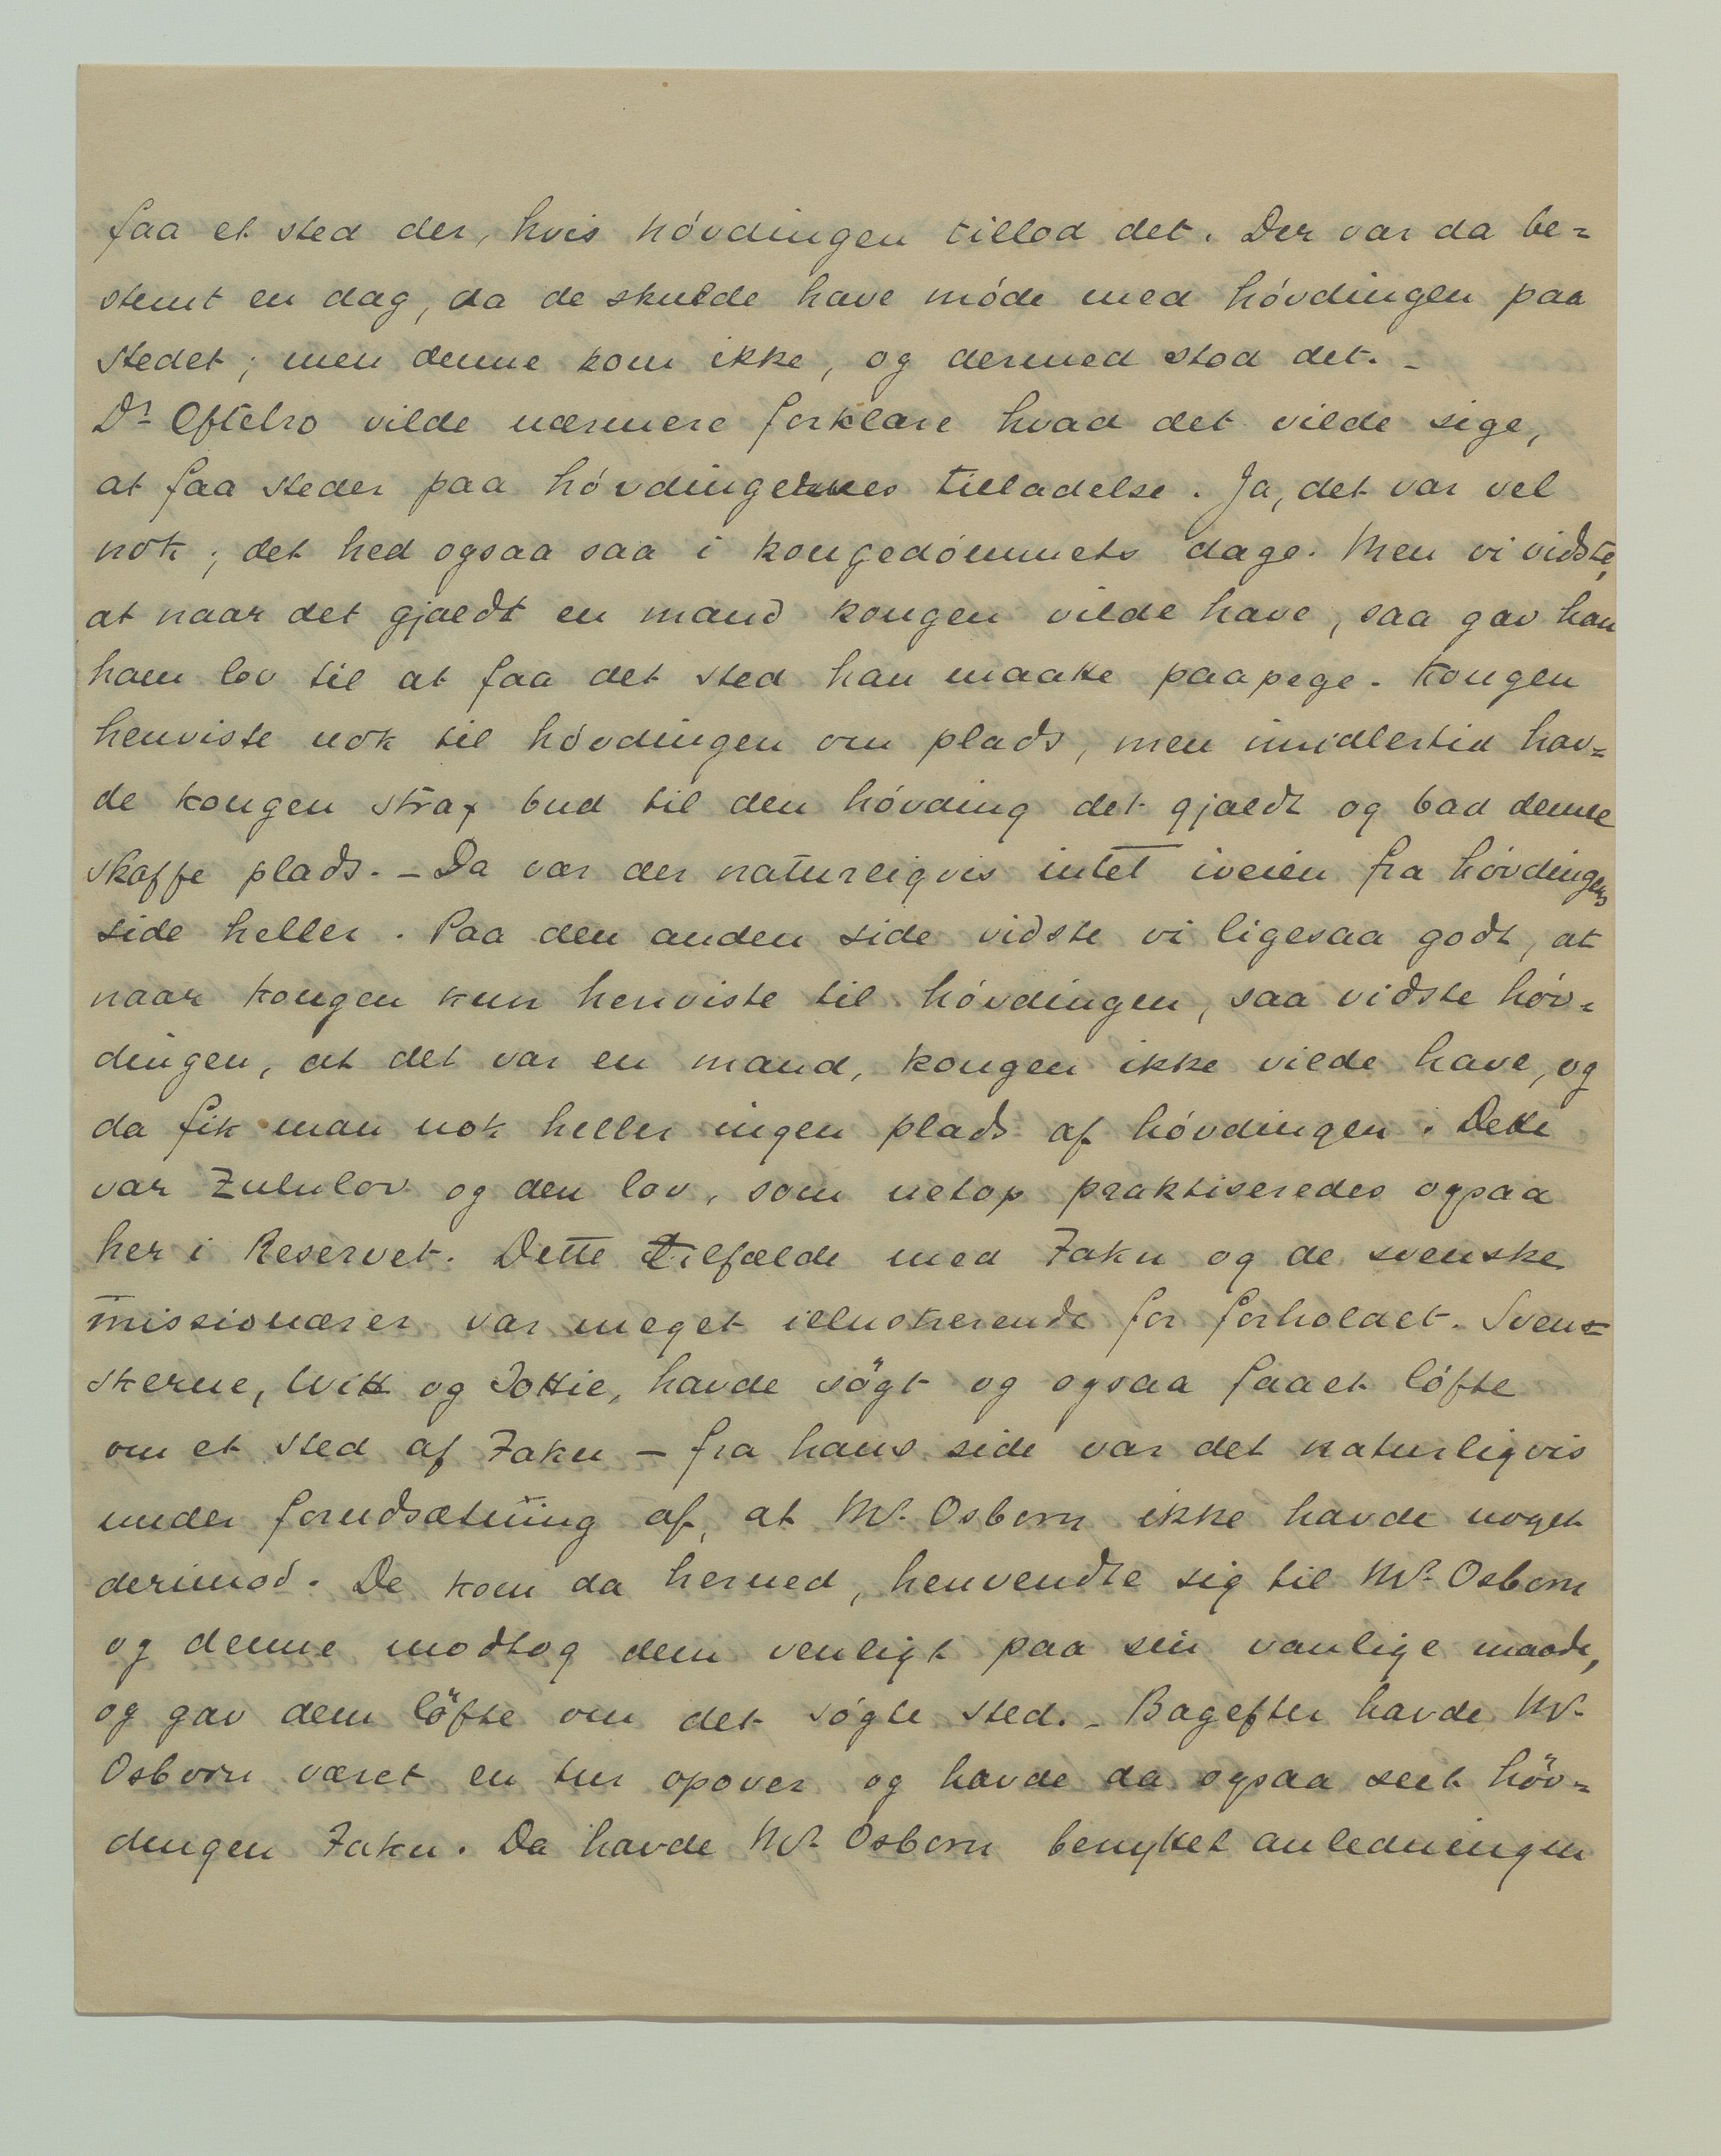 faa et sted der, hvis hóvdingen tillod det. Der var da be=
stemt en dag, da de skulde have móde med hóvdingen paa
stedet; men denne kom ikke, og dermed stod det. _
Dr Oftebro vilde nærmere forklare hvad det vilde sige,
at faa steder paa hóvdingernes tilladelse. Ja, det var vel
nok; det hed ogsaa saa i kongedómmets dage. Men vi vidste,
at naar det gjaldt en mand kongen vilde have, saa gav han
ham lov til at faa det sted han maatte paapege. Kongen
henviste nok til hóvdingen om plads, men imidlertid hav=
de kongen strax bud til den hóvding det gjaldt og bad denne
skaffe plads. _ Da var der naturligvis intet iveien fra hóvdingens
side heller. Paa den anden side vidste vi ligesaa godt, at
naar kongen kun henviste til hóvdingen, saa vidste hóv=
dingen, at det var en mand, kongen ikke vilde have, og
da fik man nok heller ingen plads af hóvdingen. Dette
var Zululov og den lov, som netop praktiseredes ogsaa
her i Reservet. Dette tilfælde med Faku og de svenske
missionærer var meget illustrerende for forholdet. Sven=
skerne, Witt og Tottie, havde sögt og ogsaa faaet lófte
om et sted af Faku – fra hans side var det naturligvis
under forudsætning af, at Mr. Osborn ikke havde noget
derimod. De kom da herned, henvendte sig til Mr. Osborn
og denne modtog dem venligt paa sin vanlige maade,
og gav dem löfte om det sógte sted. _ Bagefter havde Mr.
Osborn været en tur opover og havde da ogsaa seet höv=
dingen Faku. Da havde Mr. Osborn benyttet anledningen